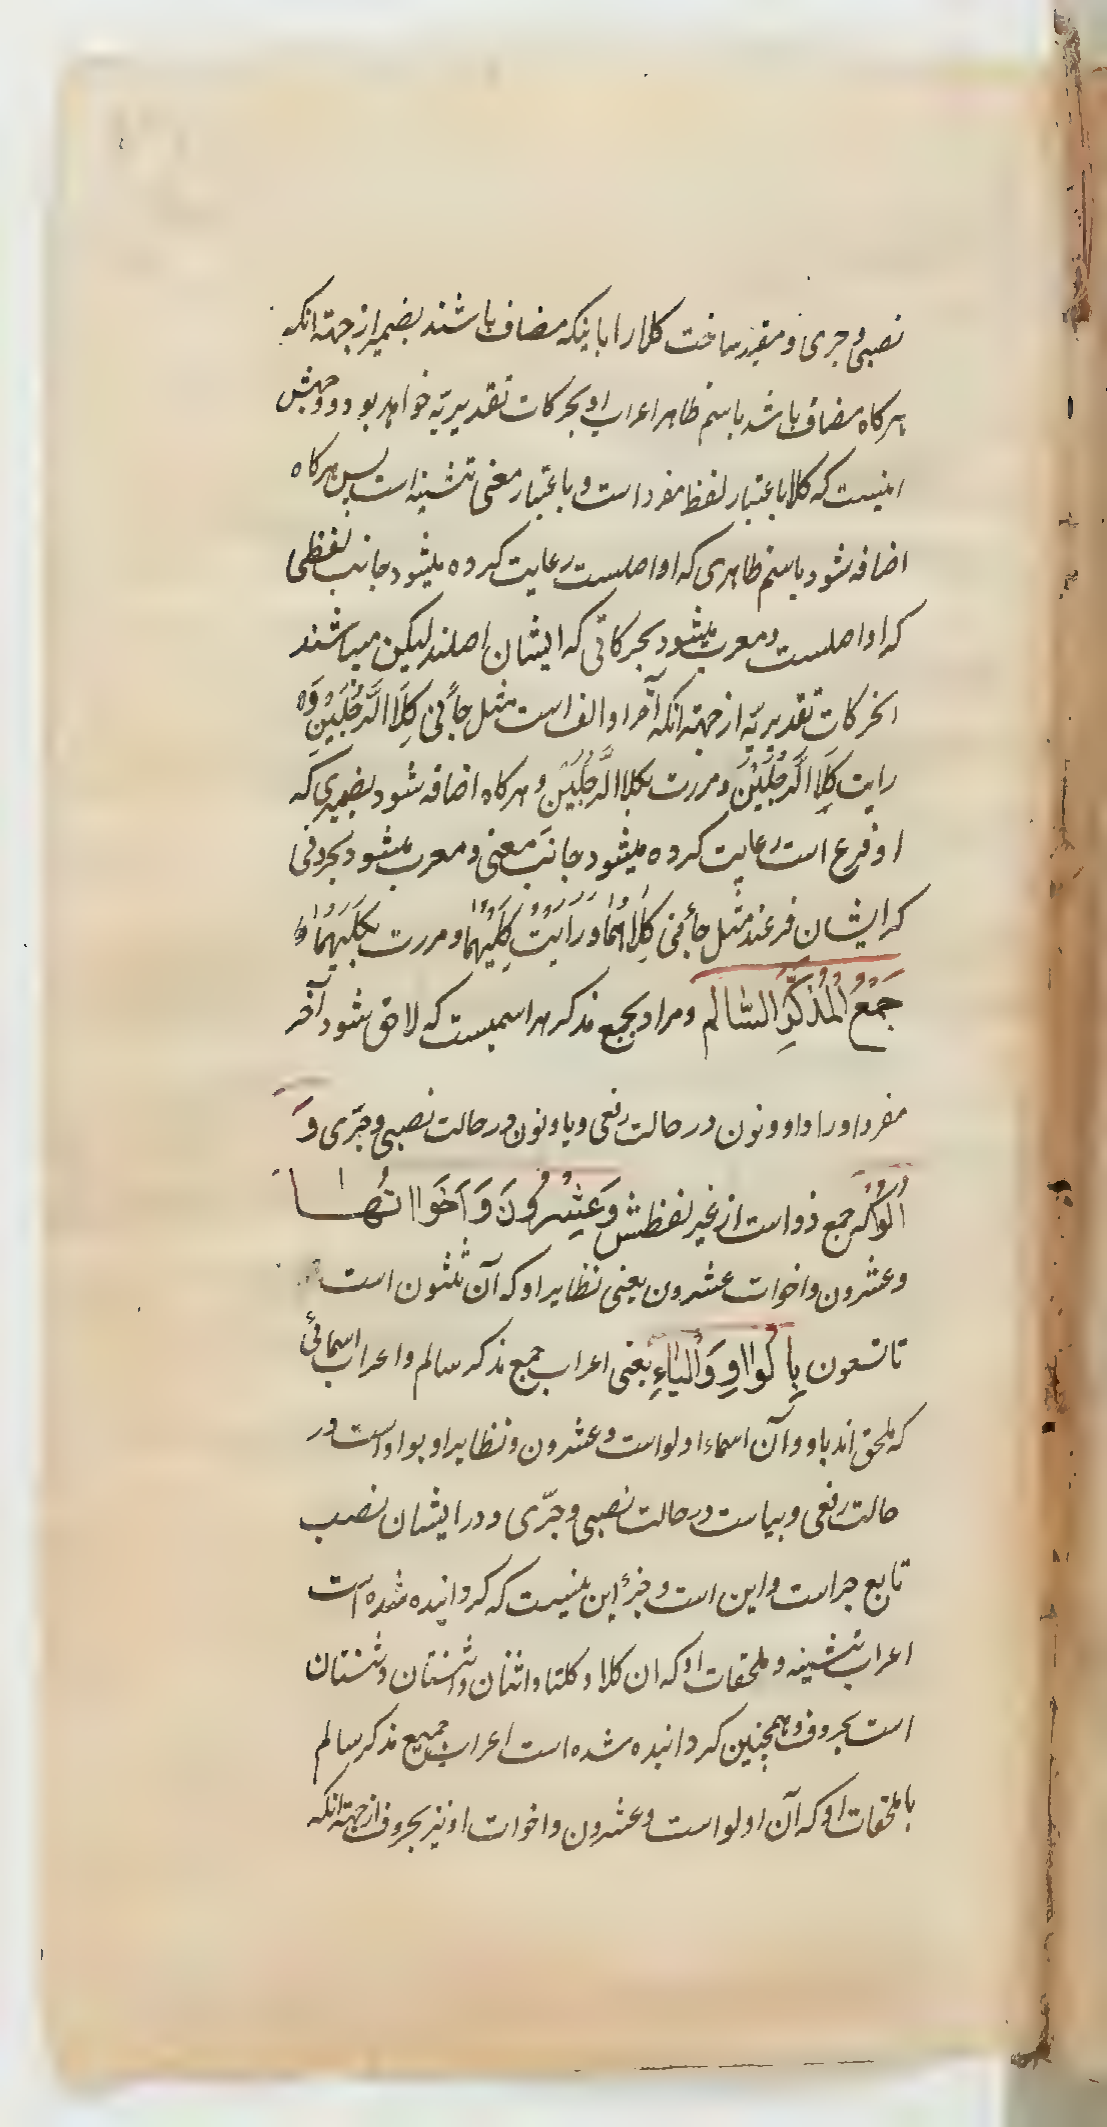 نصبی و جری و مقید ساخت کلا را باینکه مضاف باشند بضمیر از جهة انکه
هرکاه مضاف باشد باسم ظاهر اعراب او بحرکات تقدیریّه خواهد بود و وجهش
اینست که کلا باعتبار لفظ مفرد است و باعتبار معنی تثنیه است پس هرکاه
اضافه شود باسم ظاهری که او اصلست رعایت کرده میشود جانب لفظی
که او اصلست و معرب میشود بحرکاتی که ایشان اصلند لیکن میباشند
انحرکات تقدیریّه از جهة انکه آخر او الف است مثل جأنی کِلَا الرَّجُلَیْنِ وَ
رایت کِلَا الرَّجُلَیْن و مررت بکلا الرَّجُلَیْن و هرکاه اضافه شود بضمیری که
او فرع است رعایت کرده میشود جانب معنی و معرب میشود بحروفی
که ایشان فرعند مثل جأنی کِلَاهُمَا وَ رَایْتُ کِلَیْهِمَا و مررت بکِلَیْهِمَا وَ
جَمْعُ الْمُذَکَّرِ السَّالِم و مراد بجمع مذکر هر اسمیست که لاحق شود آخر
مفرد او را واو و نون در حالت رفعی و یا و نون در حالت نصبی و جرّی وَ
اُلُوْ که جمع ذو است از غیر لفظش وَ عِشْرُونَ وَ اَخَوَاتُهَا
و عشرون و اخوات عشرون یعنی نظایر او که آن ثلثون است
تا تسعون بِالْوَاوِ وَ الْیَاءِ یعنی اعراب جمع مذکر سالم و اعراب اسمائی
که ملحق اند باو و آن اسماء اولو است و عشرون و نظایر او بواو است در
حالت رفعی و بیاست در حالت نصبی و جرّی و در ایشان نصب
تابع جر است و این است و جز این نیست که کردانیده شده است
اعراب تثنیه و ملحقات او که ان کلا و کلتا و اثنان و اثنتان و ثنتان
است بحروف و همچنین کردانیده شده است اعراب جمیع مذکر سالم
با ملحقات او که آن اولو است و عشرون و اخوات او نیز بحروف از جهة انکه